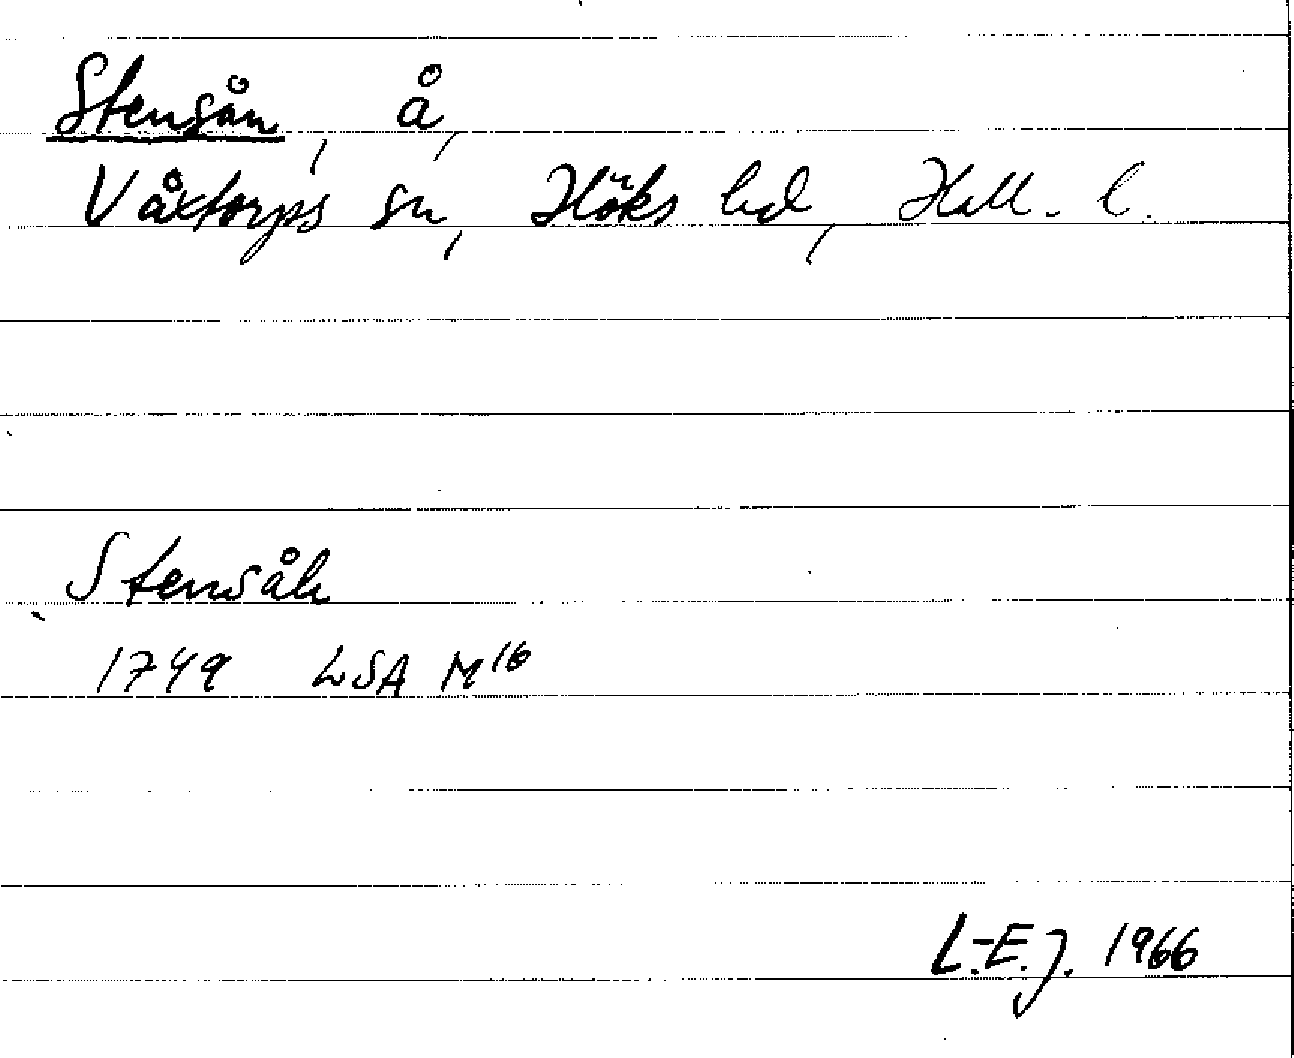 Stensån, å,
Våxtorps sn, Höks hd, Hall. l.
Stensåh
1749 LSA M16
L.-E.J. 1966